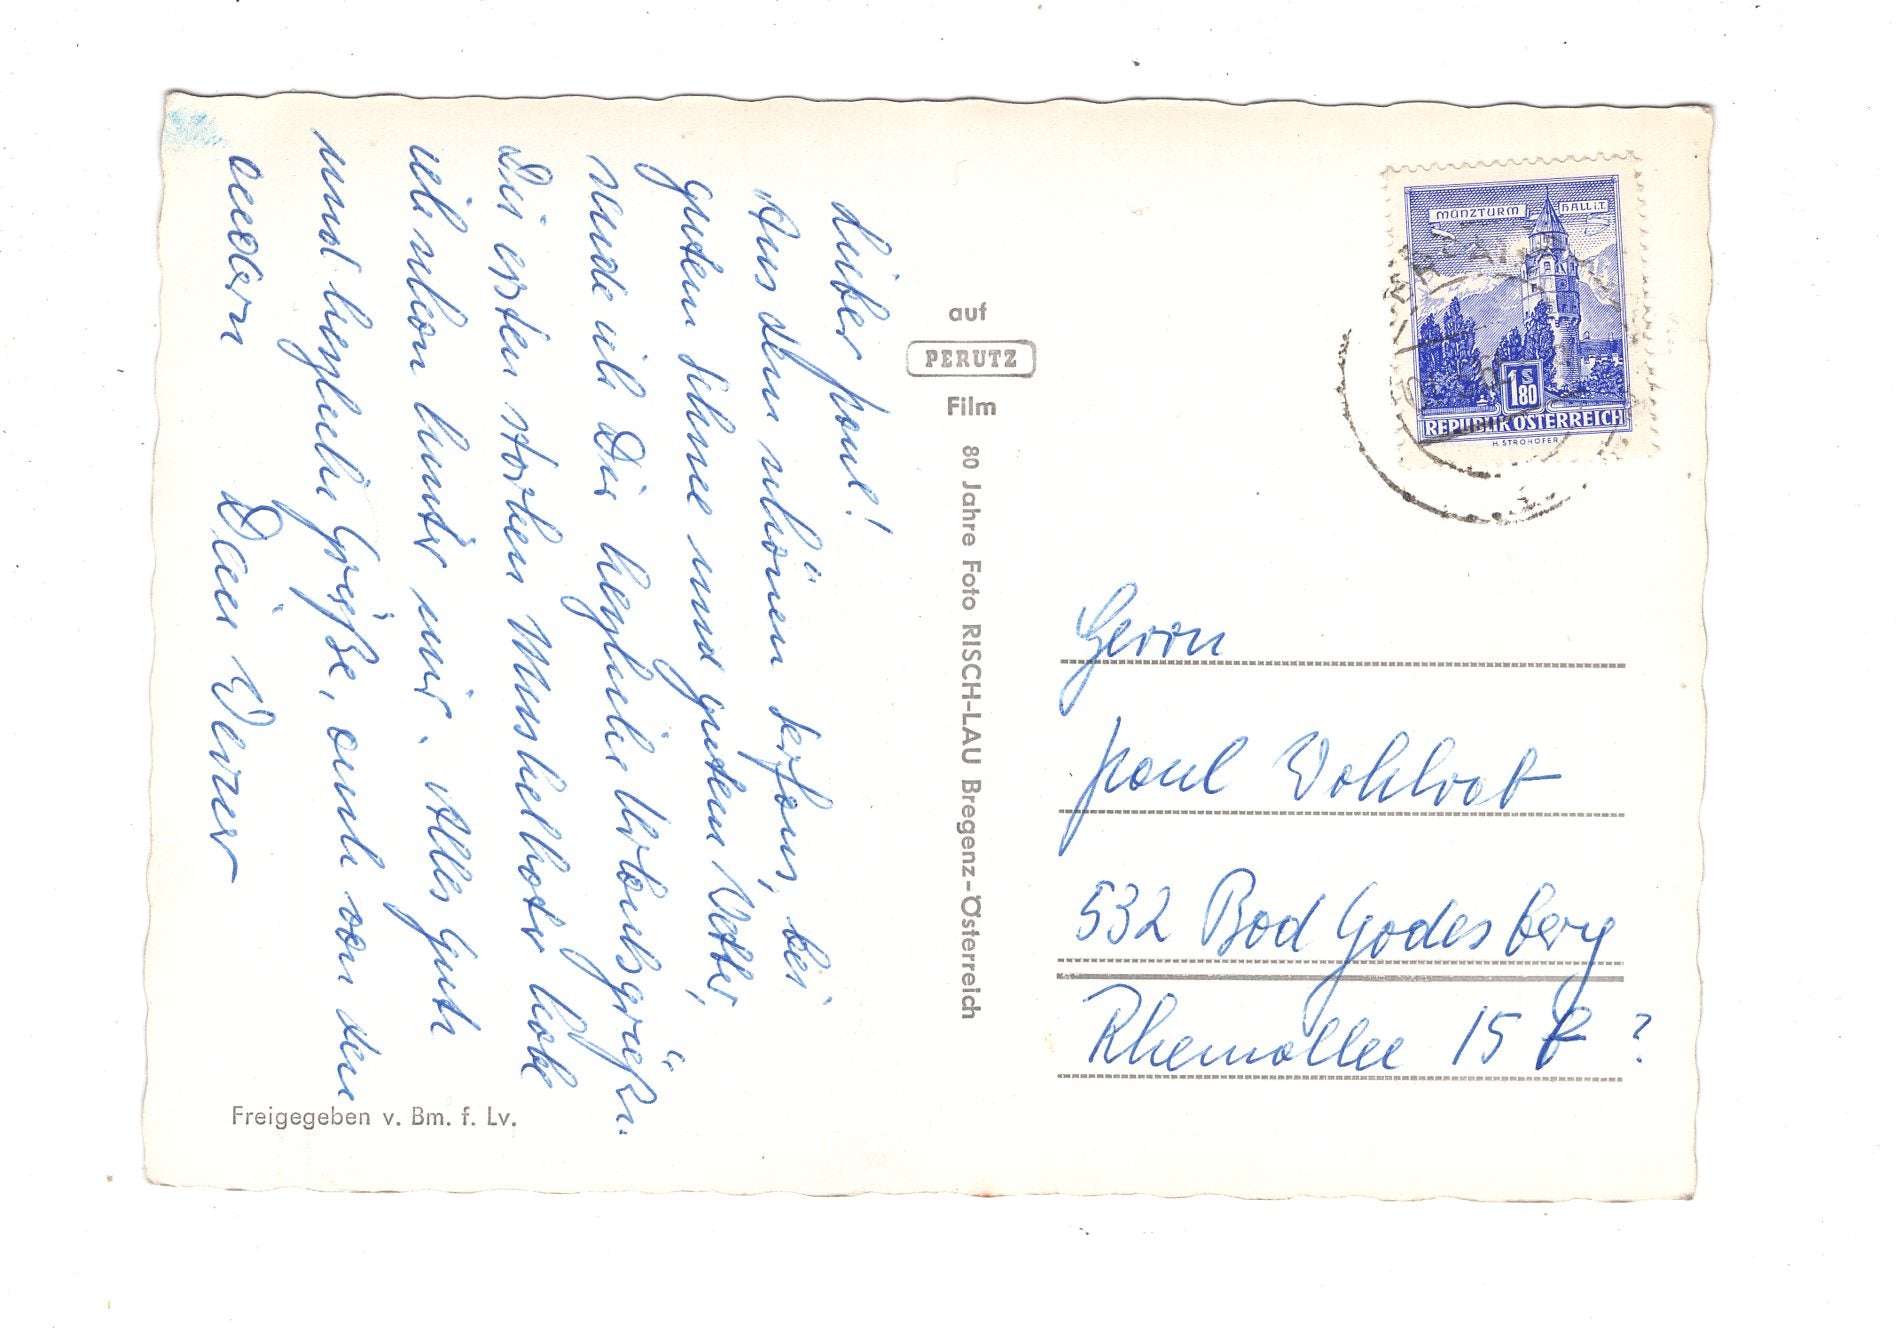 Lieber Paul!
Aus dem schönen Serfaus, bei
gutem Schnee und gutem Wetter,
sende ich Dir herzliche Urlaubsgrüße.
Den ersten starken Muskelkater habe
ich schon hinter mir. Alles Gute
und herzliche Grüße, auch von den
andern Dein Werner
Freigegeben v. Bm. f. Lv.
auf
PERUTZ
Film
80 Jahre Foto RISCH-LAU Bregenz-Österreich
MÜNZTURM HALL i.T.
1 S 80
REPUBLIK ÖSTERREICH
H. STROHOFER
Herrn
Paul Vohlrat
532 Bad Godesberg
Rheinallee 15 ?